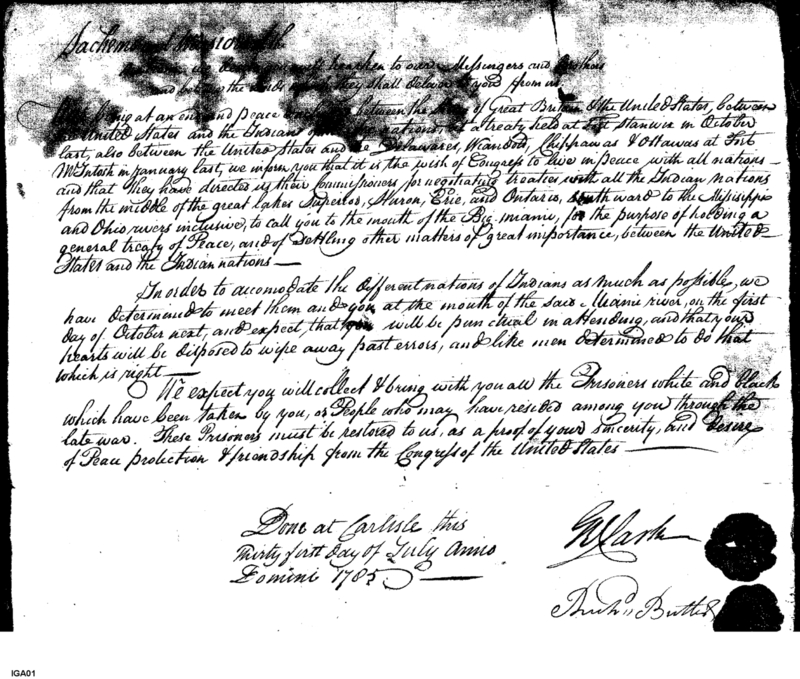 Sachems and Warriors
hearken to our Messingers and Brothers
and believe the words which they shall deliver to you from us
being at an end and peace between the King of Great Britain & the United States, between
the United States and the Indians of the nations, at a treaty held at Fort Stanwix in October
last, also between the United States and the Delawares, Wiandots, Chippawas & Ottawas at Fort
McIntosh in January last, we inform you that it is the wish of Congress to live in peace with all nations —
and that they have directed us their Commissioners for negotiating treaties with all the Indian nations
from the middle of the great lakes Superior, Huron, Erie, and Ontario, southward to the Mississippi
and Ohio rivers inclusive, to call you to the mouth of the Big-miami, for the purpose of holding a
general treaty of Peace, and of settling other matters of great importance, between the United
States and the Indian nations —
In order to accomodate the different nations of Indians as much as possible, we
have determined to meet them and you at the mouth of the said Miami river, on the first
day of October next, and expect, that you will be punctual in attending, and that your
hearts will be disposed to wipe away past errors, and like men determined to do that
which is right —
We expect you will collect & bring with you all the Prisoners white and black
which have been taken by you, or People who may have resided among you through the
late war. These Prisoners must be restored to us, as a proof of your sincerity, and desire
of Peace protection & friendship from the Congress of the United States —
Done at Carlisle this
Thirty first day of July Anno
Domini 1785 —
GRClark
Richd. Butler
IGA01